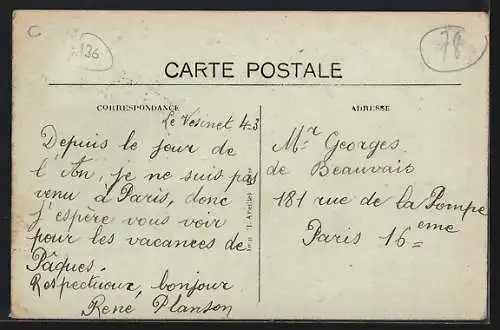 C
136
78
CARTE POSTALE
CORRESPONDANCE
Le Vesinet 4-3
Depuis le jour de
l'An, je ne suis pas
venu à Paris, donc
j'espère vous voir
pour les vacances de
Pâques.
Respectueux, bonjour
René Planson
ADRESSE
Mr Georges
de Beauvais
181 rue de la Pompe
Paris 16eme